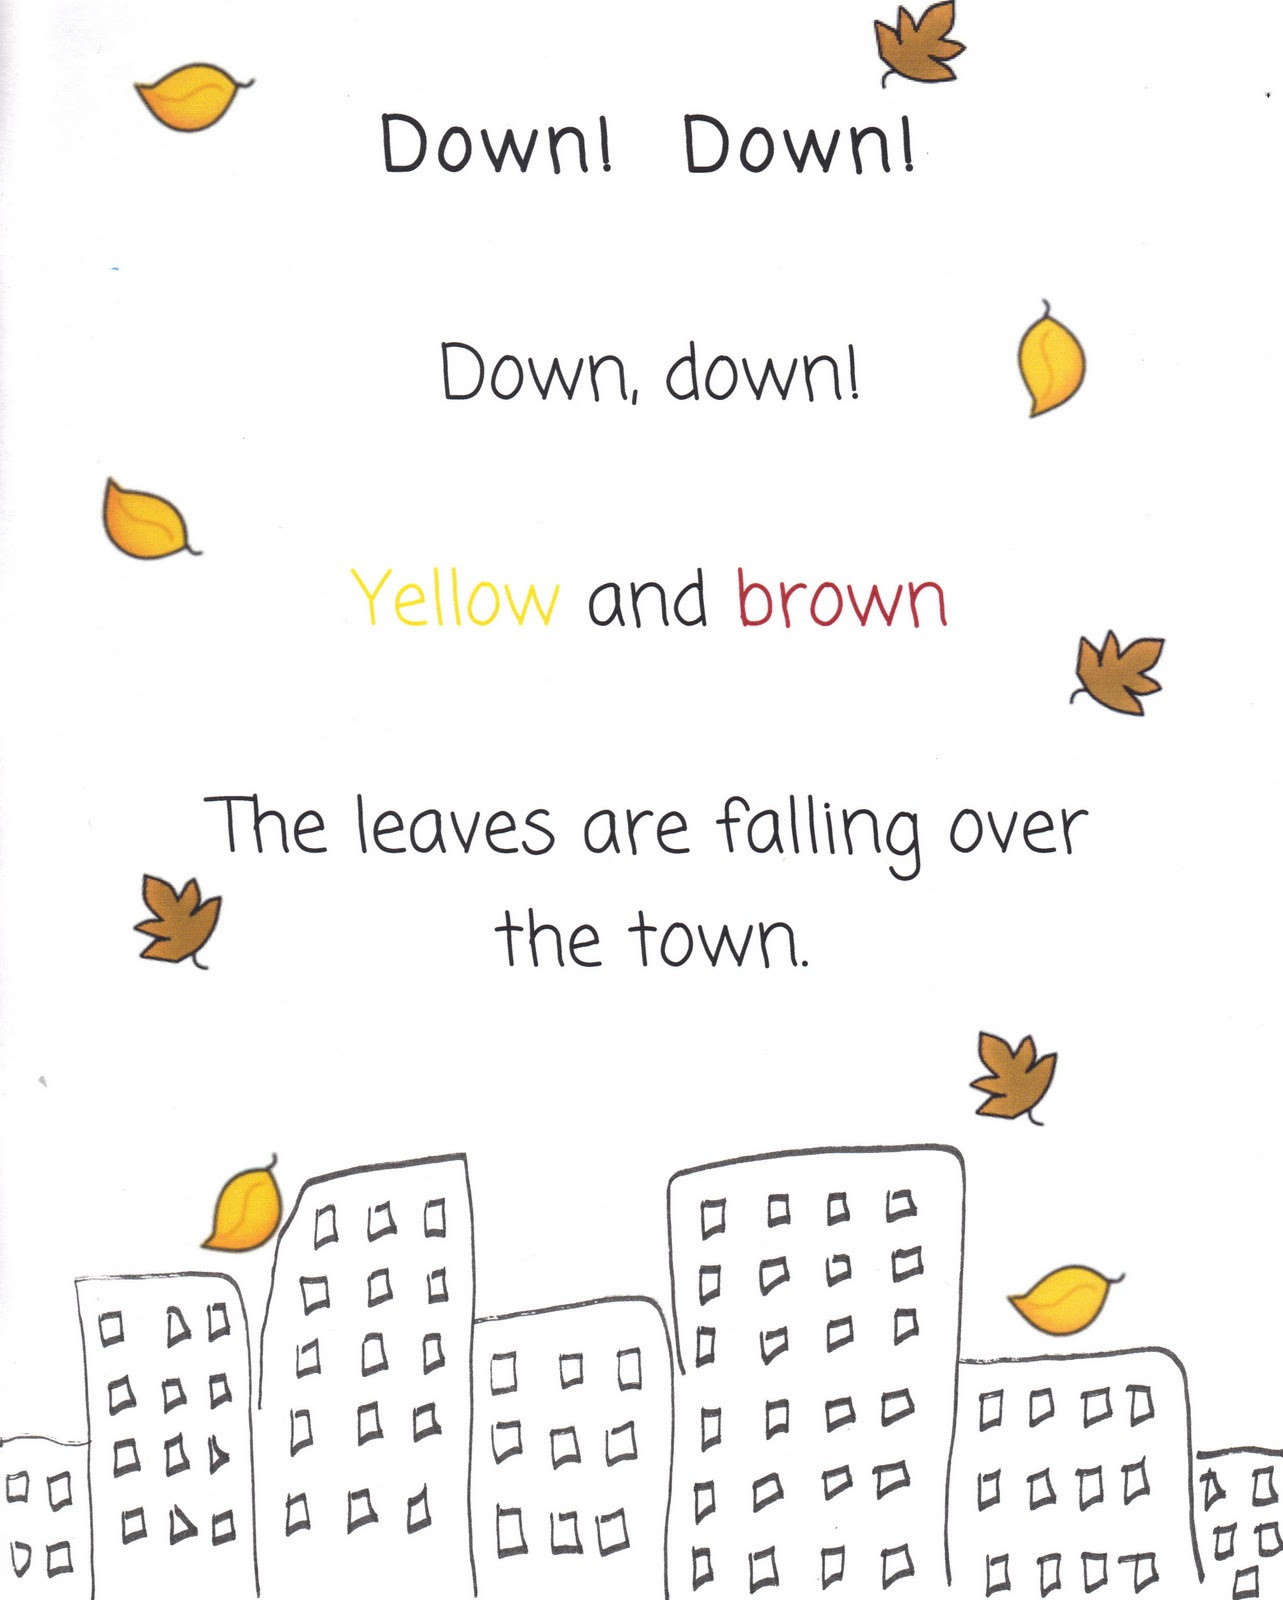 Down! Down!
Down, down!
Yellow and brown
The leaves are falling over
the town.